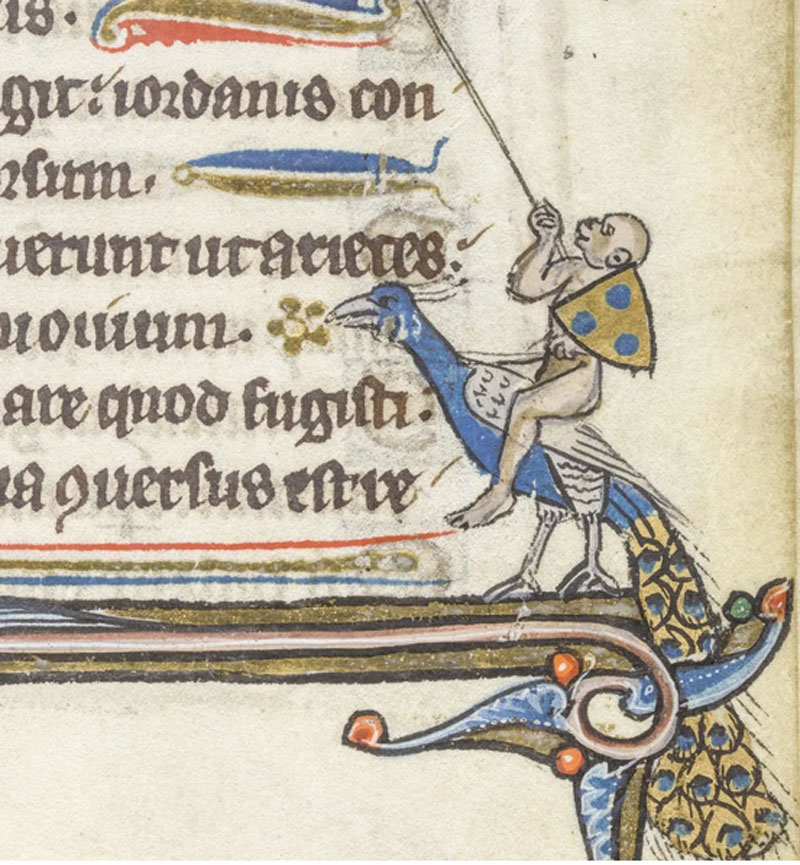 is.
git: iordanis con
rsum.
uerunt ut arietes:
ouium.
are quod fugisti.
ia ꝯuersus est re